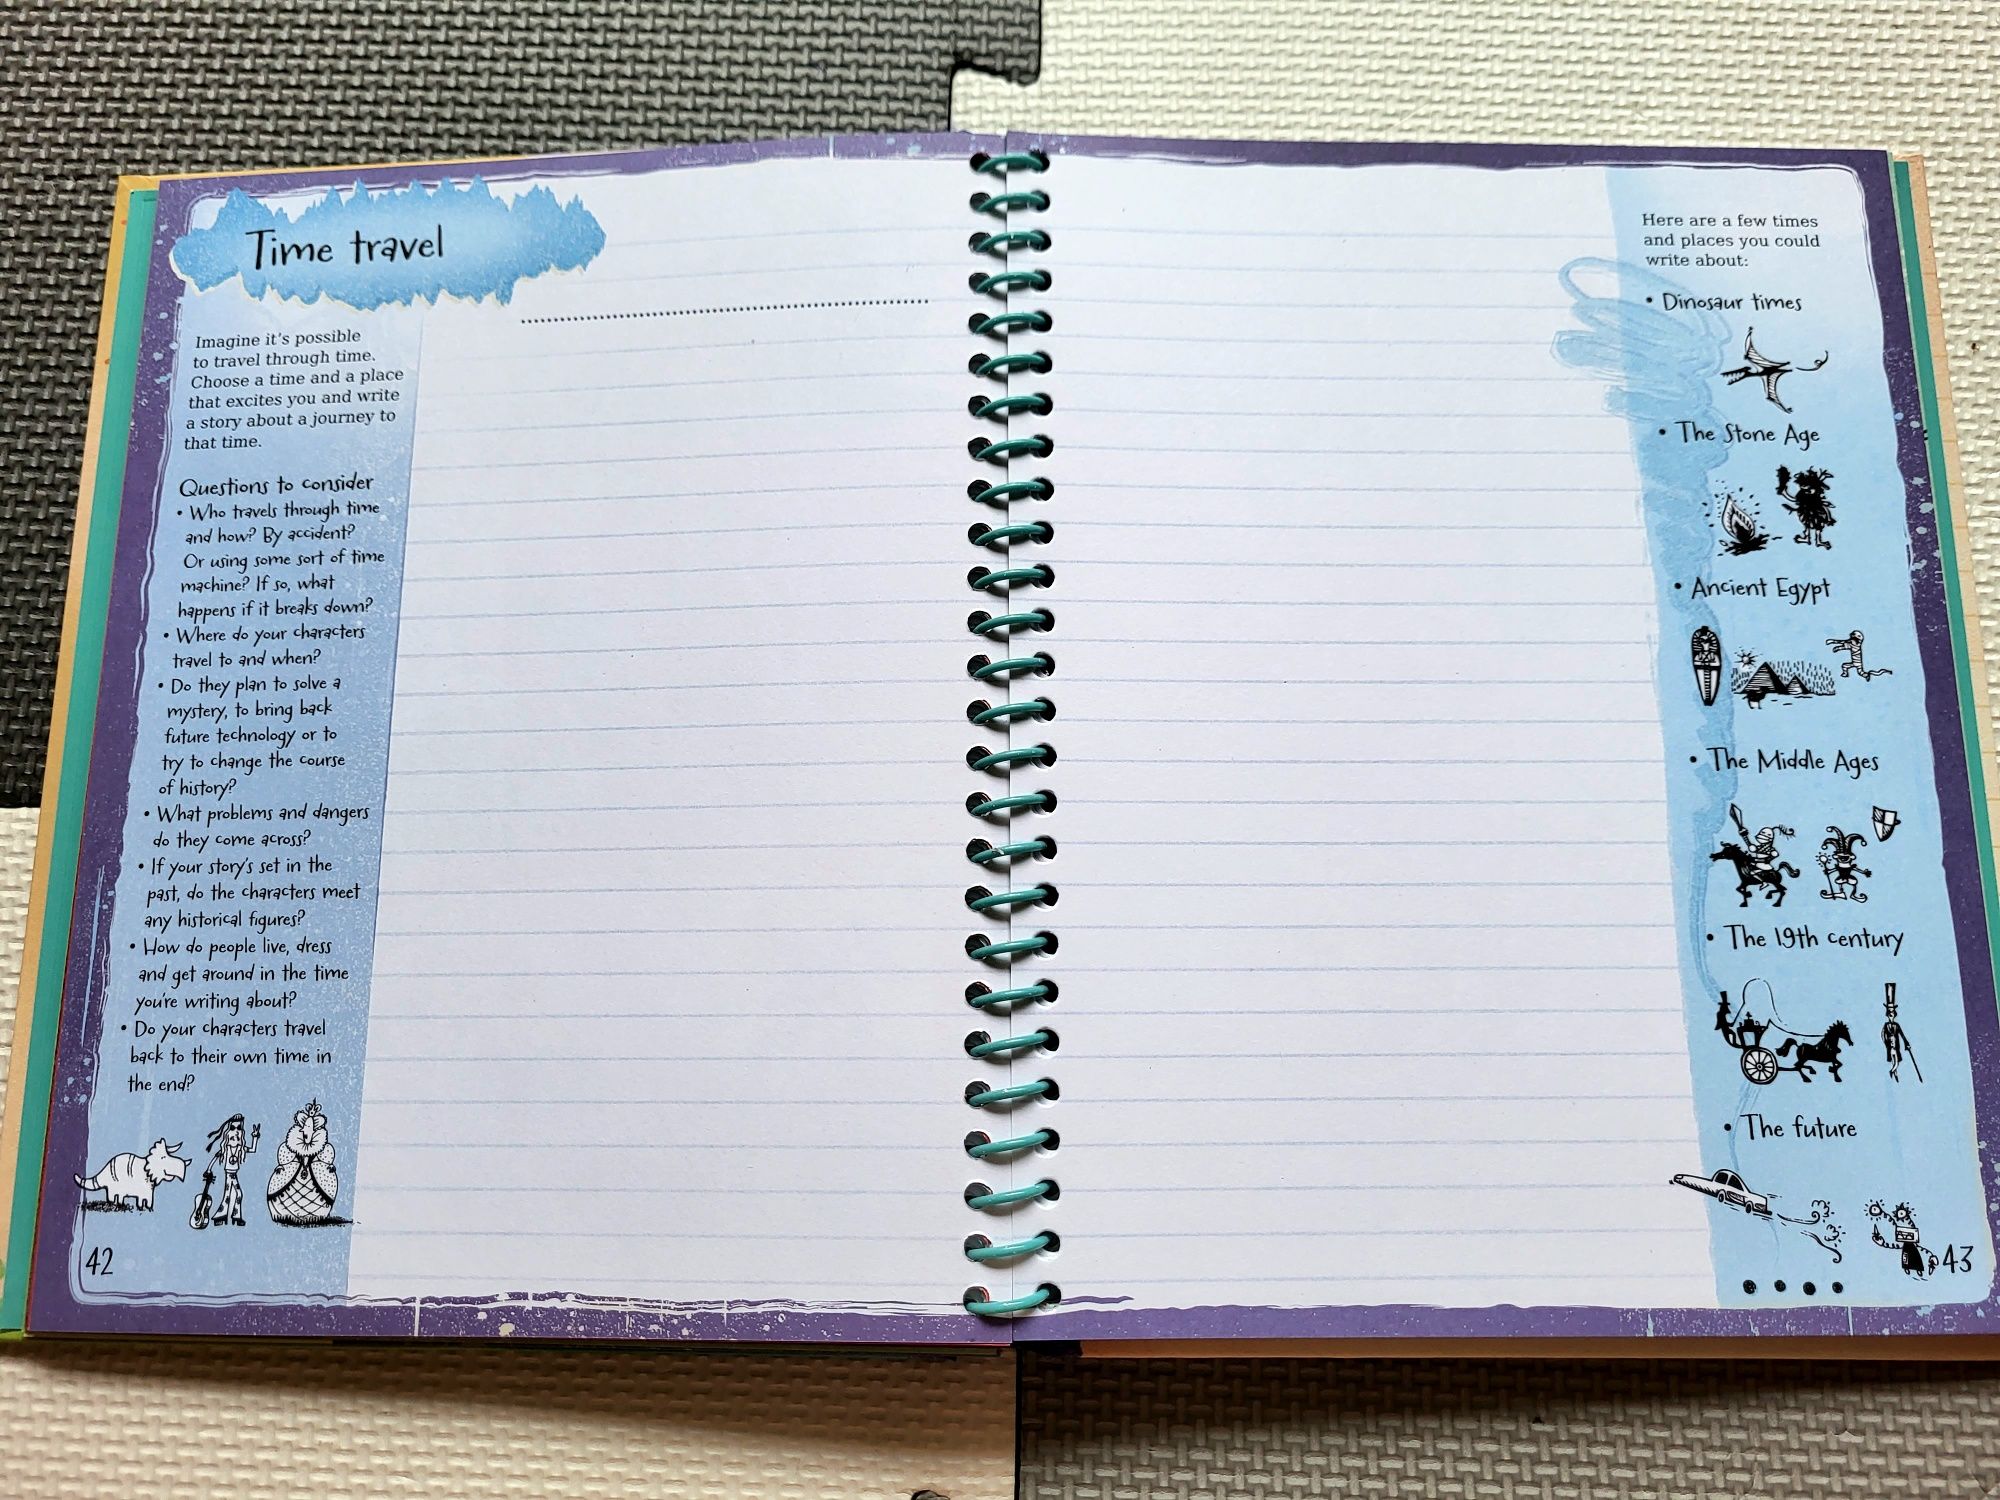 Time travel
Imagine it's possible
to travel through time.
Choose a time and a place
that excites you and write
a story about a journey to
that time.
Questions to consider
• Who travels through time
and how? By accident?
Or using some sort of time
machine? If so, what
happens if it breaks down?
• Where do your characters
travel to and when?
• Do they plan to solve a
mystery, to bring back
future technology or to
try to change the course
of history?
• What problems and dangers
do they come across?
• If your story's set in the
past, do the characters meet
any historical figures?
• How do people live, dress
and get around in the time
you're writing about?
• Do your characters travel
back to their own time in
the end?
42
Here are a few times
and places you could
write about:
• Dinosaur times
• The Stone Age
• Ancient Egypt
• The Middle Ages
• The 19th century
• The future
43